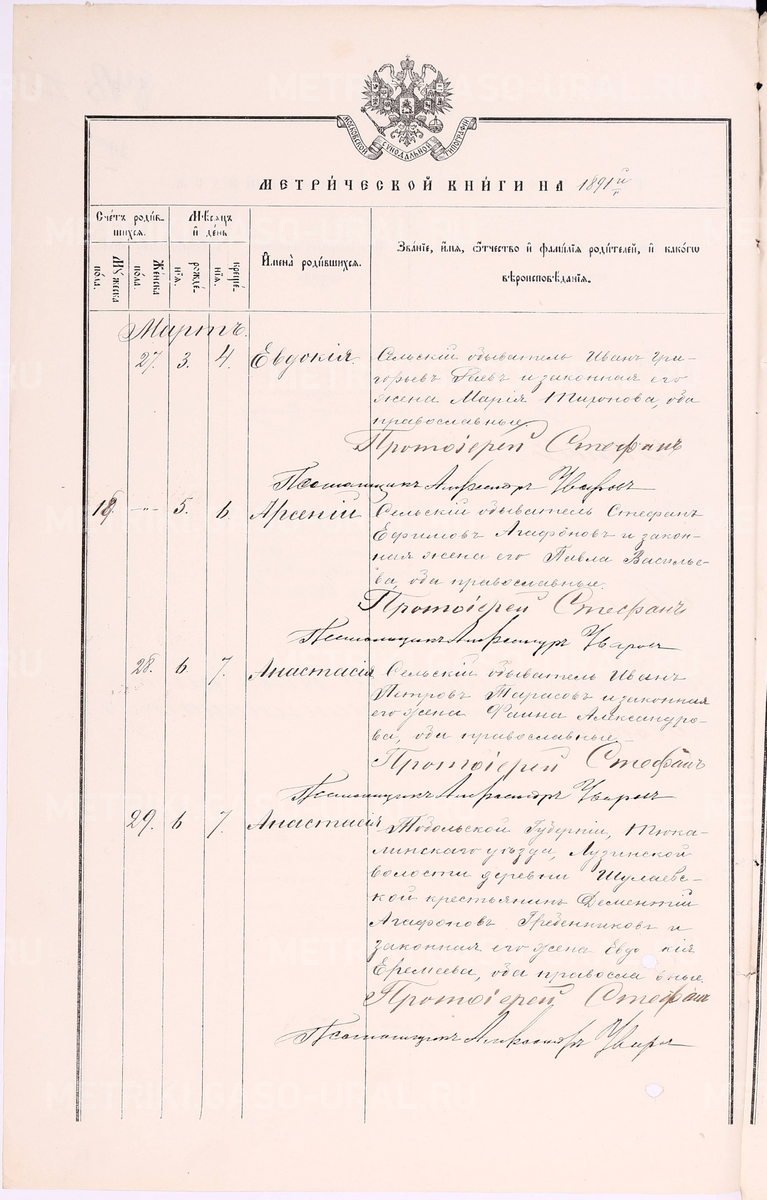 METRIKI.GASO-URAL.RU
МОСКОВСКОЙ СѴНОДАЛЬНОЙ ТИПОГРАФІИ
МЕТРИ́ЧЕСКОЙ КНИ́ГИ НА 1891й г.
Сче́тъ роди́вшихся.
Мѣсяцъ и де́нь
Имена̀ роди́вшихся.
Зва́нїе, и́мя, ѻ́тчество и фами́лїя роди́телей, и како́гѡ вѣроисповѣ́данїя.
Му́жеска по́ла.
Же́нска по́ла.
рожде́нїя.
креще́нїя.
Мартъ.
27. 3. 4. Евдокія. Сельскій обыватель Иванъ Гри-
горьевъ и законная его
жена Марія Тихонова, оба
православные
Протоіерей Стефанъ
Псаломщикъ Александръ Уваровъ
18. -"- 5. 6. Арсеній Сельскій обыватель Стефанъ
Ефимовъ Агафоновъ и закон-
ная жена его Павла Василье-
ва, оба православные.
Протоіерей Стефанъ
Псаломщикъ Александръ Уваровъ
28. 6. 7. Анастасія Сельскій обыватель Иванъ
Петровъ Тарасовъ и законная
его жена Фаина Александро-
ва, оба православные
Протоіерей Стефанъ
Псаломщикъ Александръ Уваровъ
29. 6 7. Анастасія Тобольской Губерніи, Тюка-
линскаго уѣзда, Лузинской
волости деревни Шулаевс-
кой крестьянинъ Дементій
Агафоновъ Гребенниковъ и
законная его жена Евдокія
Еремеева, оба православные.
Протоіерей Стефанъ
Псаломщикъ Александръ Уваровъ